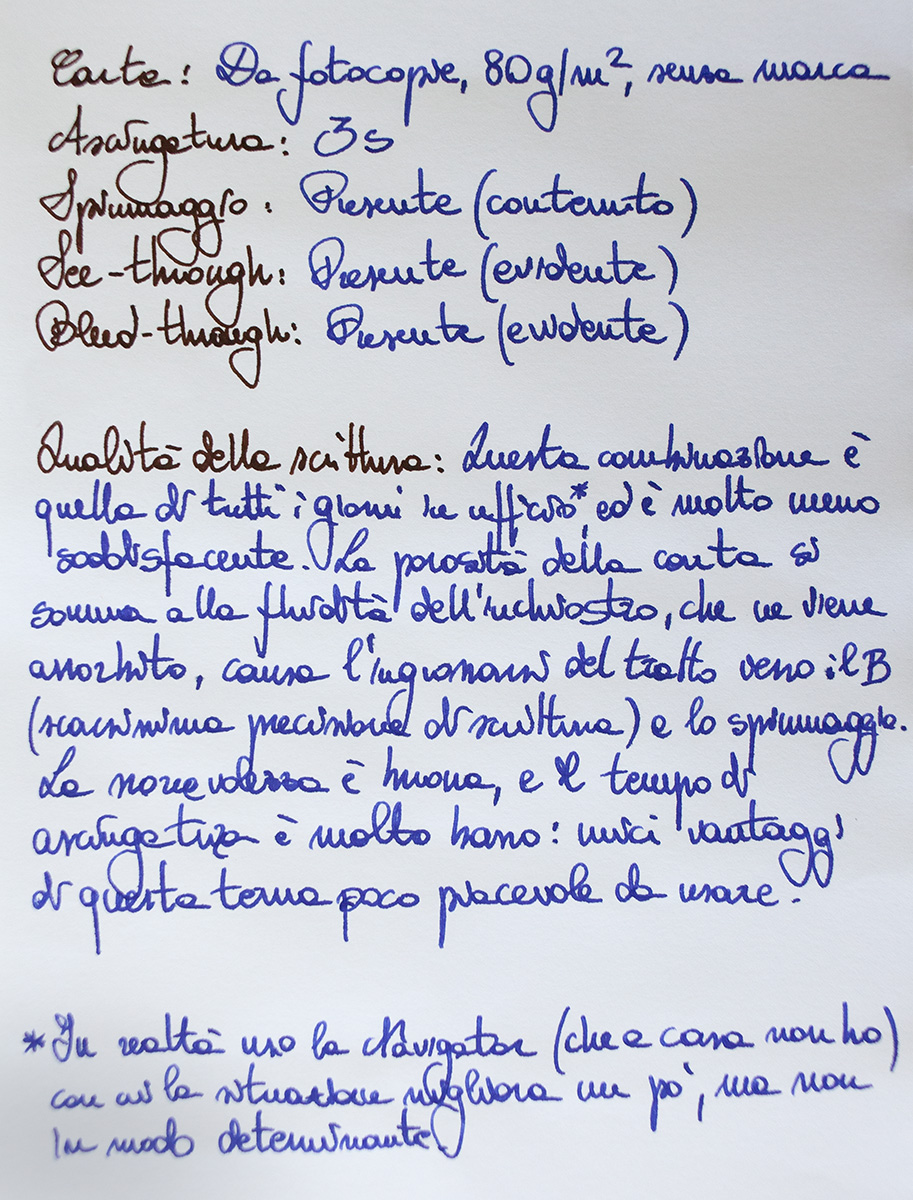 Carta: Da fotocopie, 80g/m², senza marca
Asciugatura: 3s
Spiumaggio: Presente (contenuto)
See-through: Presente (evidente)
Bleed-through: Presente (evidente)
Qualità della scrittura: Questa combinazione è
quella di tutti i giorni in ufficio*, ed è molto meno
soddisfacente. La porosità della carta si
somma alla fluidità dell'inchiostro, che ne viene
assorbito, causa l'ingrossarsi del tratto verso il B
(scarsissima precisione di scrittura) e lo spiumaggio.
La scorrevolezza è buona, e il tempo di
asciugatura è molto basso: unici vantaggi
di questa terna poco piacevole da usare.
*In realtà uso la Navigator (che a casa non ho)
con cui la situazione migliora un po', ma non
in modo determinante.